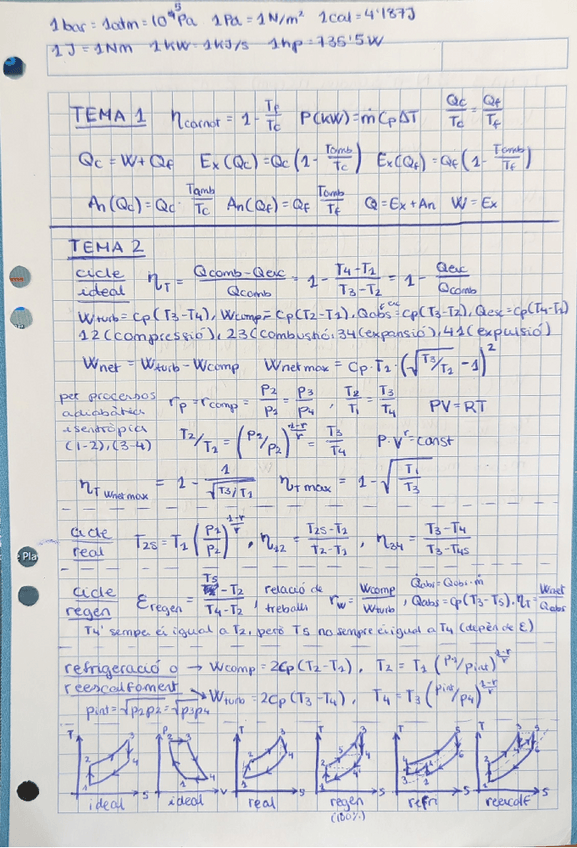 1 bar = 1atm = 10^5 Pa 1Pa = 1N/m² 1cal = 4'187J
1J = 1Nm 1KW = 1KJ/s 1hp = 735'5W
TEMA 1 ηcarnot = 1 - Tf/Tc P(KW) = ṁ Cp ΔT Qc/Tc = Qf/Tf
Qc = W + Qf Ex(Qc) = Qc (1 - Tamb/Tc) Ex(Qf) = Qf (1 - Tamb/Tf)
An(Qc) = Qc · Tamb/Tc An(Qf) = Qf Tamb/Tf Q = Ex + An W = Ex
TEMA 2
cicle ideal ηT = (Qcomb - Qesc)/Qcomb = 1 - (T4 - T1)/(T3 - T2) = 1 - Qesc/Qcomb
Wturb = cp(T3-T4), Wcomp = cp(T2-T1), Qabs = cp(T3-T2), Qesc = cp(T4-T1)
12(compressió), 23(combustió), 34(expansió), 41(expulsió)
Wnet = Wturb - Wcomp Wnet max = Cp · T1 · (√(T3/T1) - 1)²
per processos adiabàtic isentròpic (1-2),(3-4)
rp = rcomp = P2/P1 = P3/P4, T2/T1 = T3/T4 PV = RT
T2/T1 = (P1/P2)^((1-γ)/γ) = T3/T4 P·V^γ = const
ηT Wnet max = 1 - 1/√(T3/T1) ηT max = 1 - √(T1/T3)
cicle real T2s = T1 (P1/P2)^((1-γ)/γ), η12 = (T2s - T1)/(T2 - T1), η34 = (T3 - T4)/(T3 - T4s)
cicle regen εregen = (T5 - T2)/(T4 - T2), relació de treballs rw = Wcomp/Wturb, Q̇abs = Qabs · ṁ
Qabs = cp(T3-T5), ηT = Wnet/Qabs
T4' sempre és igual a T2, però T5 no sempre és igual a T4 (depèn de ε)
refrigeració o → Wcomp = 2cp(T2-T1), T2 = T1 (P1/pint)^((1-γ)/γ)
reescalfament → Wturb = 2cp(T3-T4), T4 = T3 (pint/p4)^((1-γ)/γ)
pint = √p1p2 = √p3p4
T P T T T T
1 2 3 4
S V S S S S
ideal ideal real regen refri reescalf
(100%)
Pla